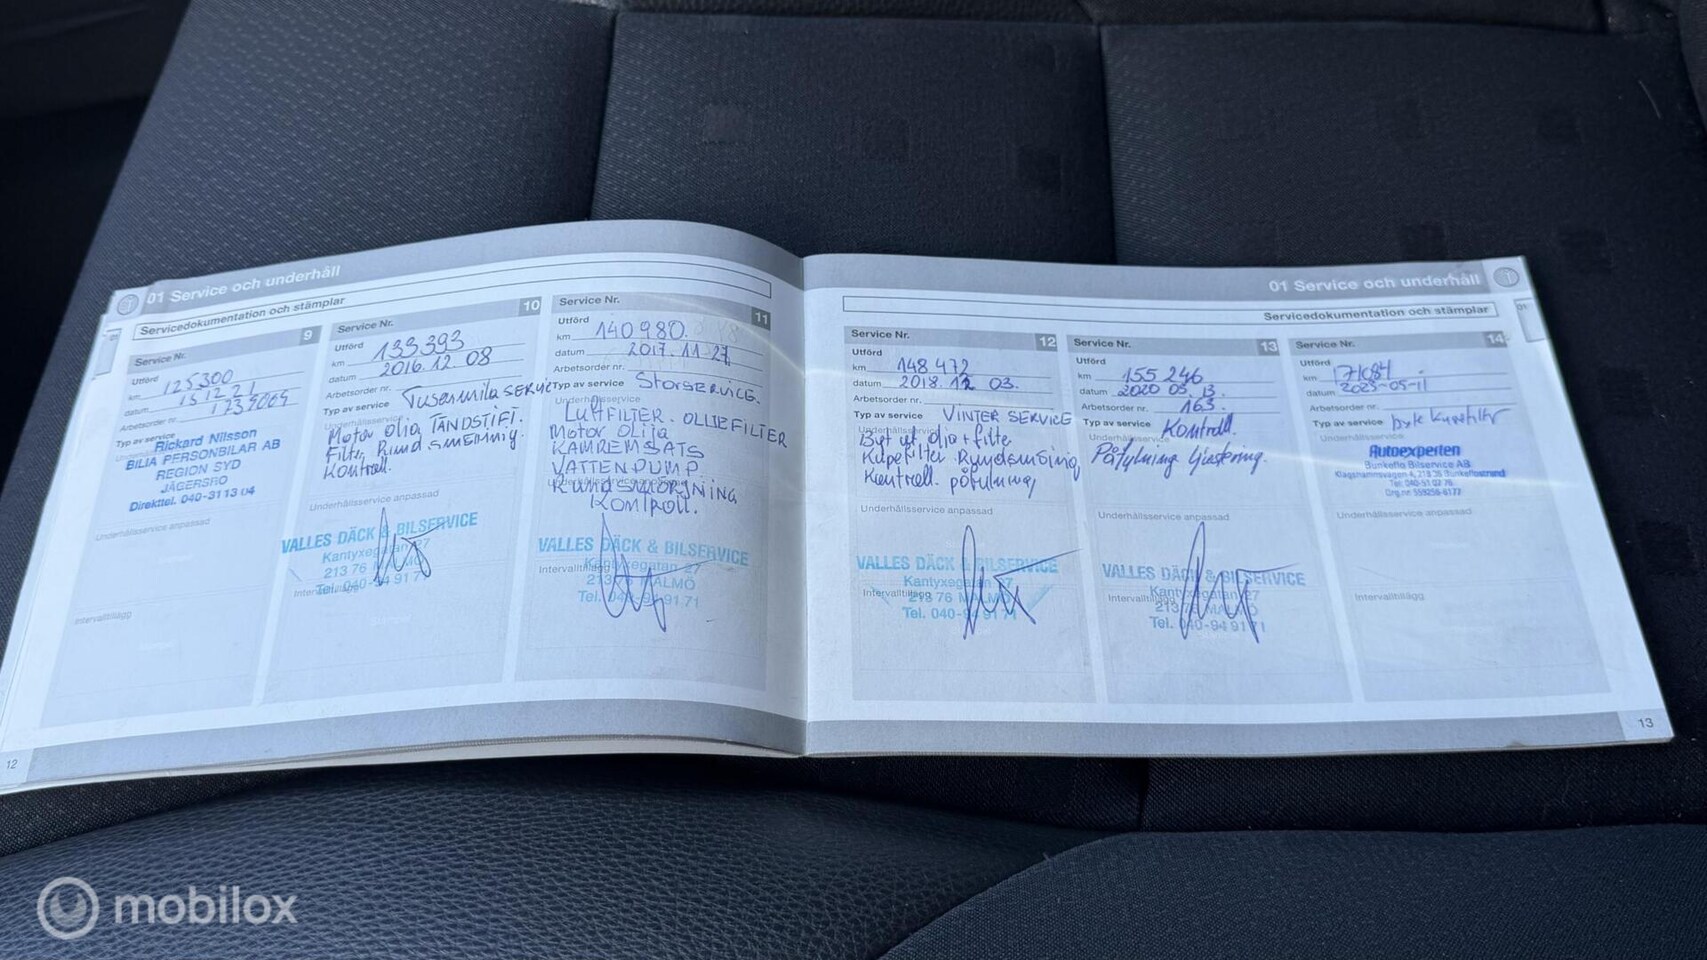 01 Service och underhåll
Servicedokumentation och stämplar
9
Service Nr.
Utförd
km 125300
datum 151221
Arbetsorder nr.
Typ av service
Rickard Nilsson
BILIA PERSONBILAR AB
REGION SYD
JÄGERSRO
Direkttel. 040-31 13 04
Underhållsservice anpassad
Intervalltillägg
10
Service Nr.
Utförd
km 133393
datum 2016.12.08
Arbetsorder nr.
Typ av service Tusenmila SERVICE
Underhållsservice
Motor olja TÄNDSTIFT.
Filter, Rund smörjnig.
Kontroll.
Underhållsservice anpassad
VALLES DÄCK & BILSERVICE
Kantyxegatan 27
213 76 MALMÖ
Intervalltillägg
Tel. 040-94 91 71
11
Service Nr.
Utförd
km 140980
datum 2017.11-27
Arbetsorder nr.
Typ av service STORSERVICE.
Underhållsservice
LUFTFILTER. OLLIEFILTER
Motor OLIJA
KAMREMSATS
VATTENPUMP.
RUNDSMORJNING
KONTROLL.
VALLES DÄCK & BILSERVICE
Kantyxegatan 27
Intervalltillägg
213 76 MALMÖ
Tel. 040-94 91 71
12
01 Service och underhåll
Servicedokumentation och stämplar
12
Service Nr.
Utförd
km 148472
datum 2018.12 03.
Arbetsorder nr.
Typ av service VINTER SERVICE
Underhållsservice
Byt ut olja + filte
Kupefilter. Rundsmöjnig
Kontroll. påfulning
Underhållsservice anpassad
VALLES DÄCK & BILSERVICE
Kantyxegatan 27
Intervalltillägg
213 76 MALMÖ
Tel. 040-94 91 71
13
Service Nr.
Utförd
km 155246
datum 2020 05.13.
Arbetsorder nr. 163.
Typ av service Kontroll.
Underhållsservice
Påfylning
Underhållsservice anpassad
VALLES DÄCK & BILSERVICE
Kantyxegatan 27
Intervalltillägg
213 76 MALMÖ
Tel. 040-94 91 71
14
Service Nr.
Utförd
km 171084
datum 2023-05-11
Arbetsorder nr.
Typ av service byte kupefilter
Underhållsservice
Autoexperten
Bunkeflo Bilservice AB
Klagshamnsvägen 4, 218 36 Bunkeflostrand
Tel: 040-51 02 76
Org.nr: 559256-6177
Underhållsservice anpassad
Intervalltillägg
13
mobilox